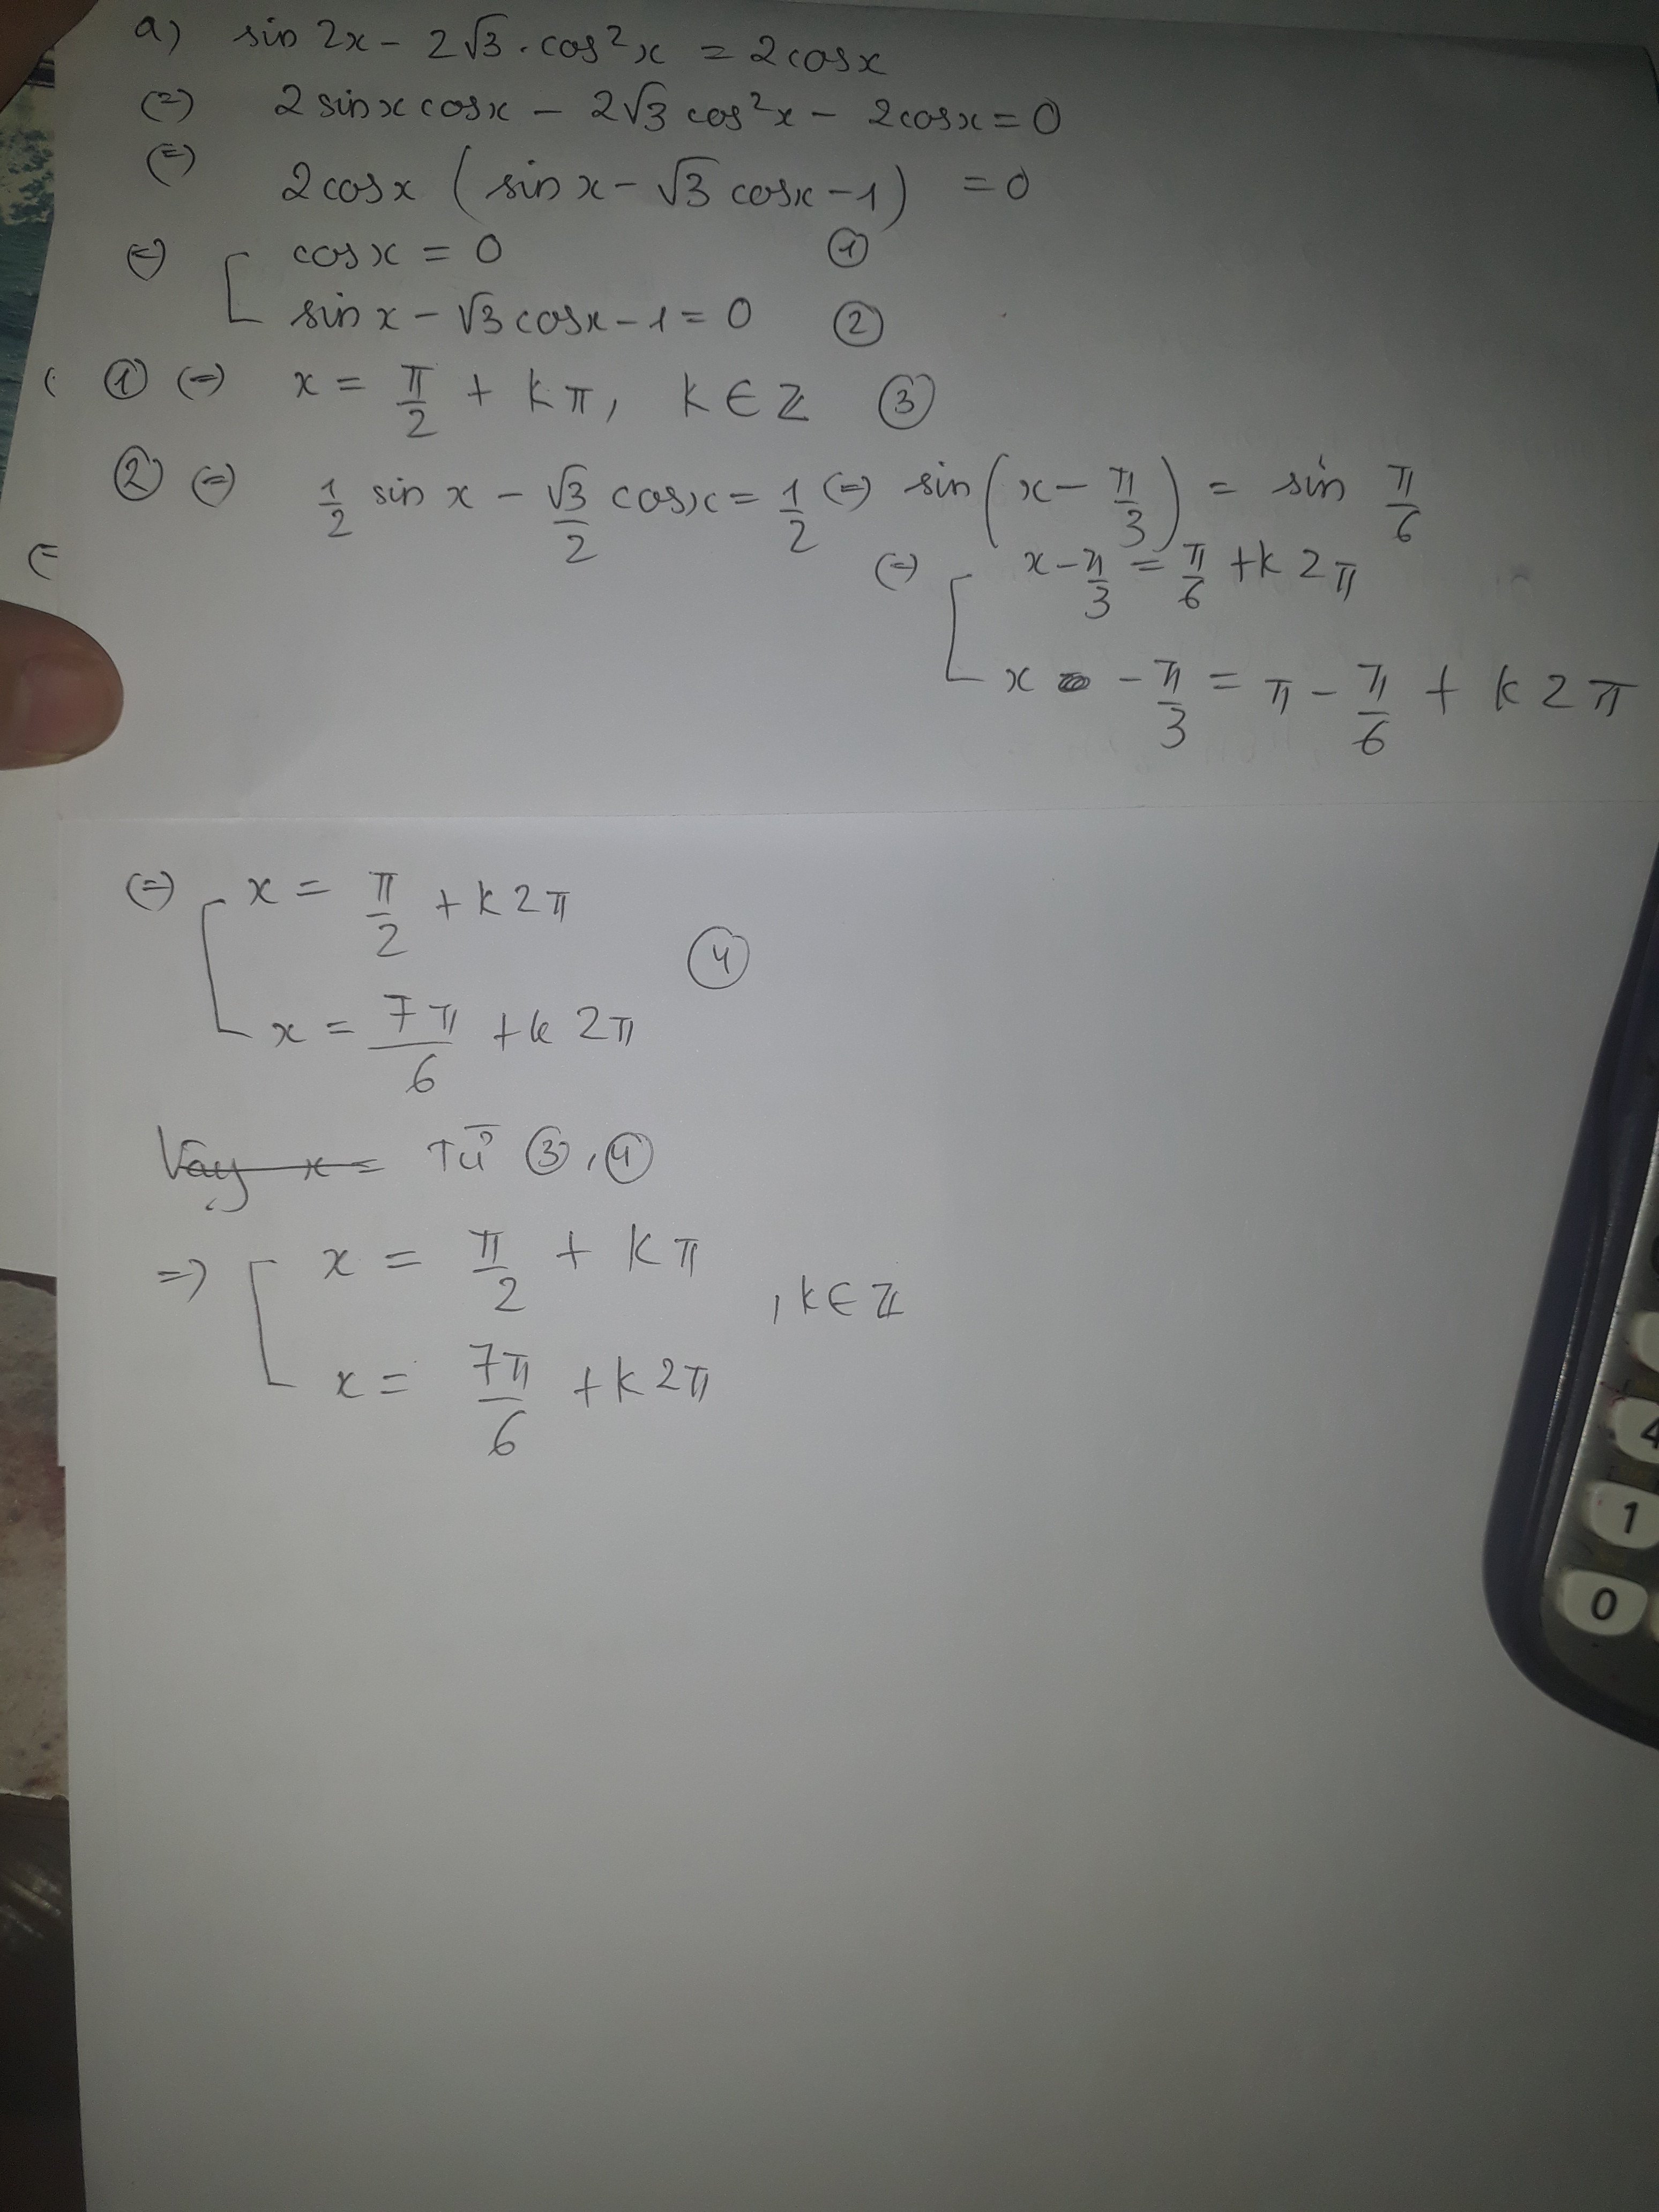 a) sin 2x - 2√3 . cos²x = 2cosx
(=) 2 sinx cosx - 2√3 cos²x - 2cosx = 0
(=) 2cosx (sin x - √3 cosx - 1) = 0
(=) [ cosx = 0 ①
sin x - √3 cosx - 1 = 0 ②
( ① (=) x = π/2 + kπ, k ∈ Z ③
② (=) 1/2 sin x - √3/2 cosx = 1/2 (=) sin(x - π/3) = sin π/6
(=
(=) [ x - π/3 = π/6 + k2π
x - π/3 = π - π/6 + k2π
(=) [ x = π/2 + k2π
④
x = 7π/6 + k2π
Vậy x = Từ ③, ④
=) [ x = π/2 + kπ
, k ∈ Z
x = 7π/6 + k2π
4
1
0